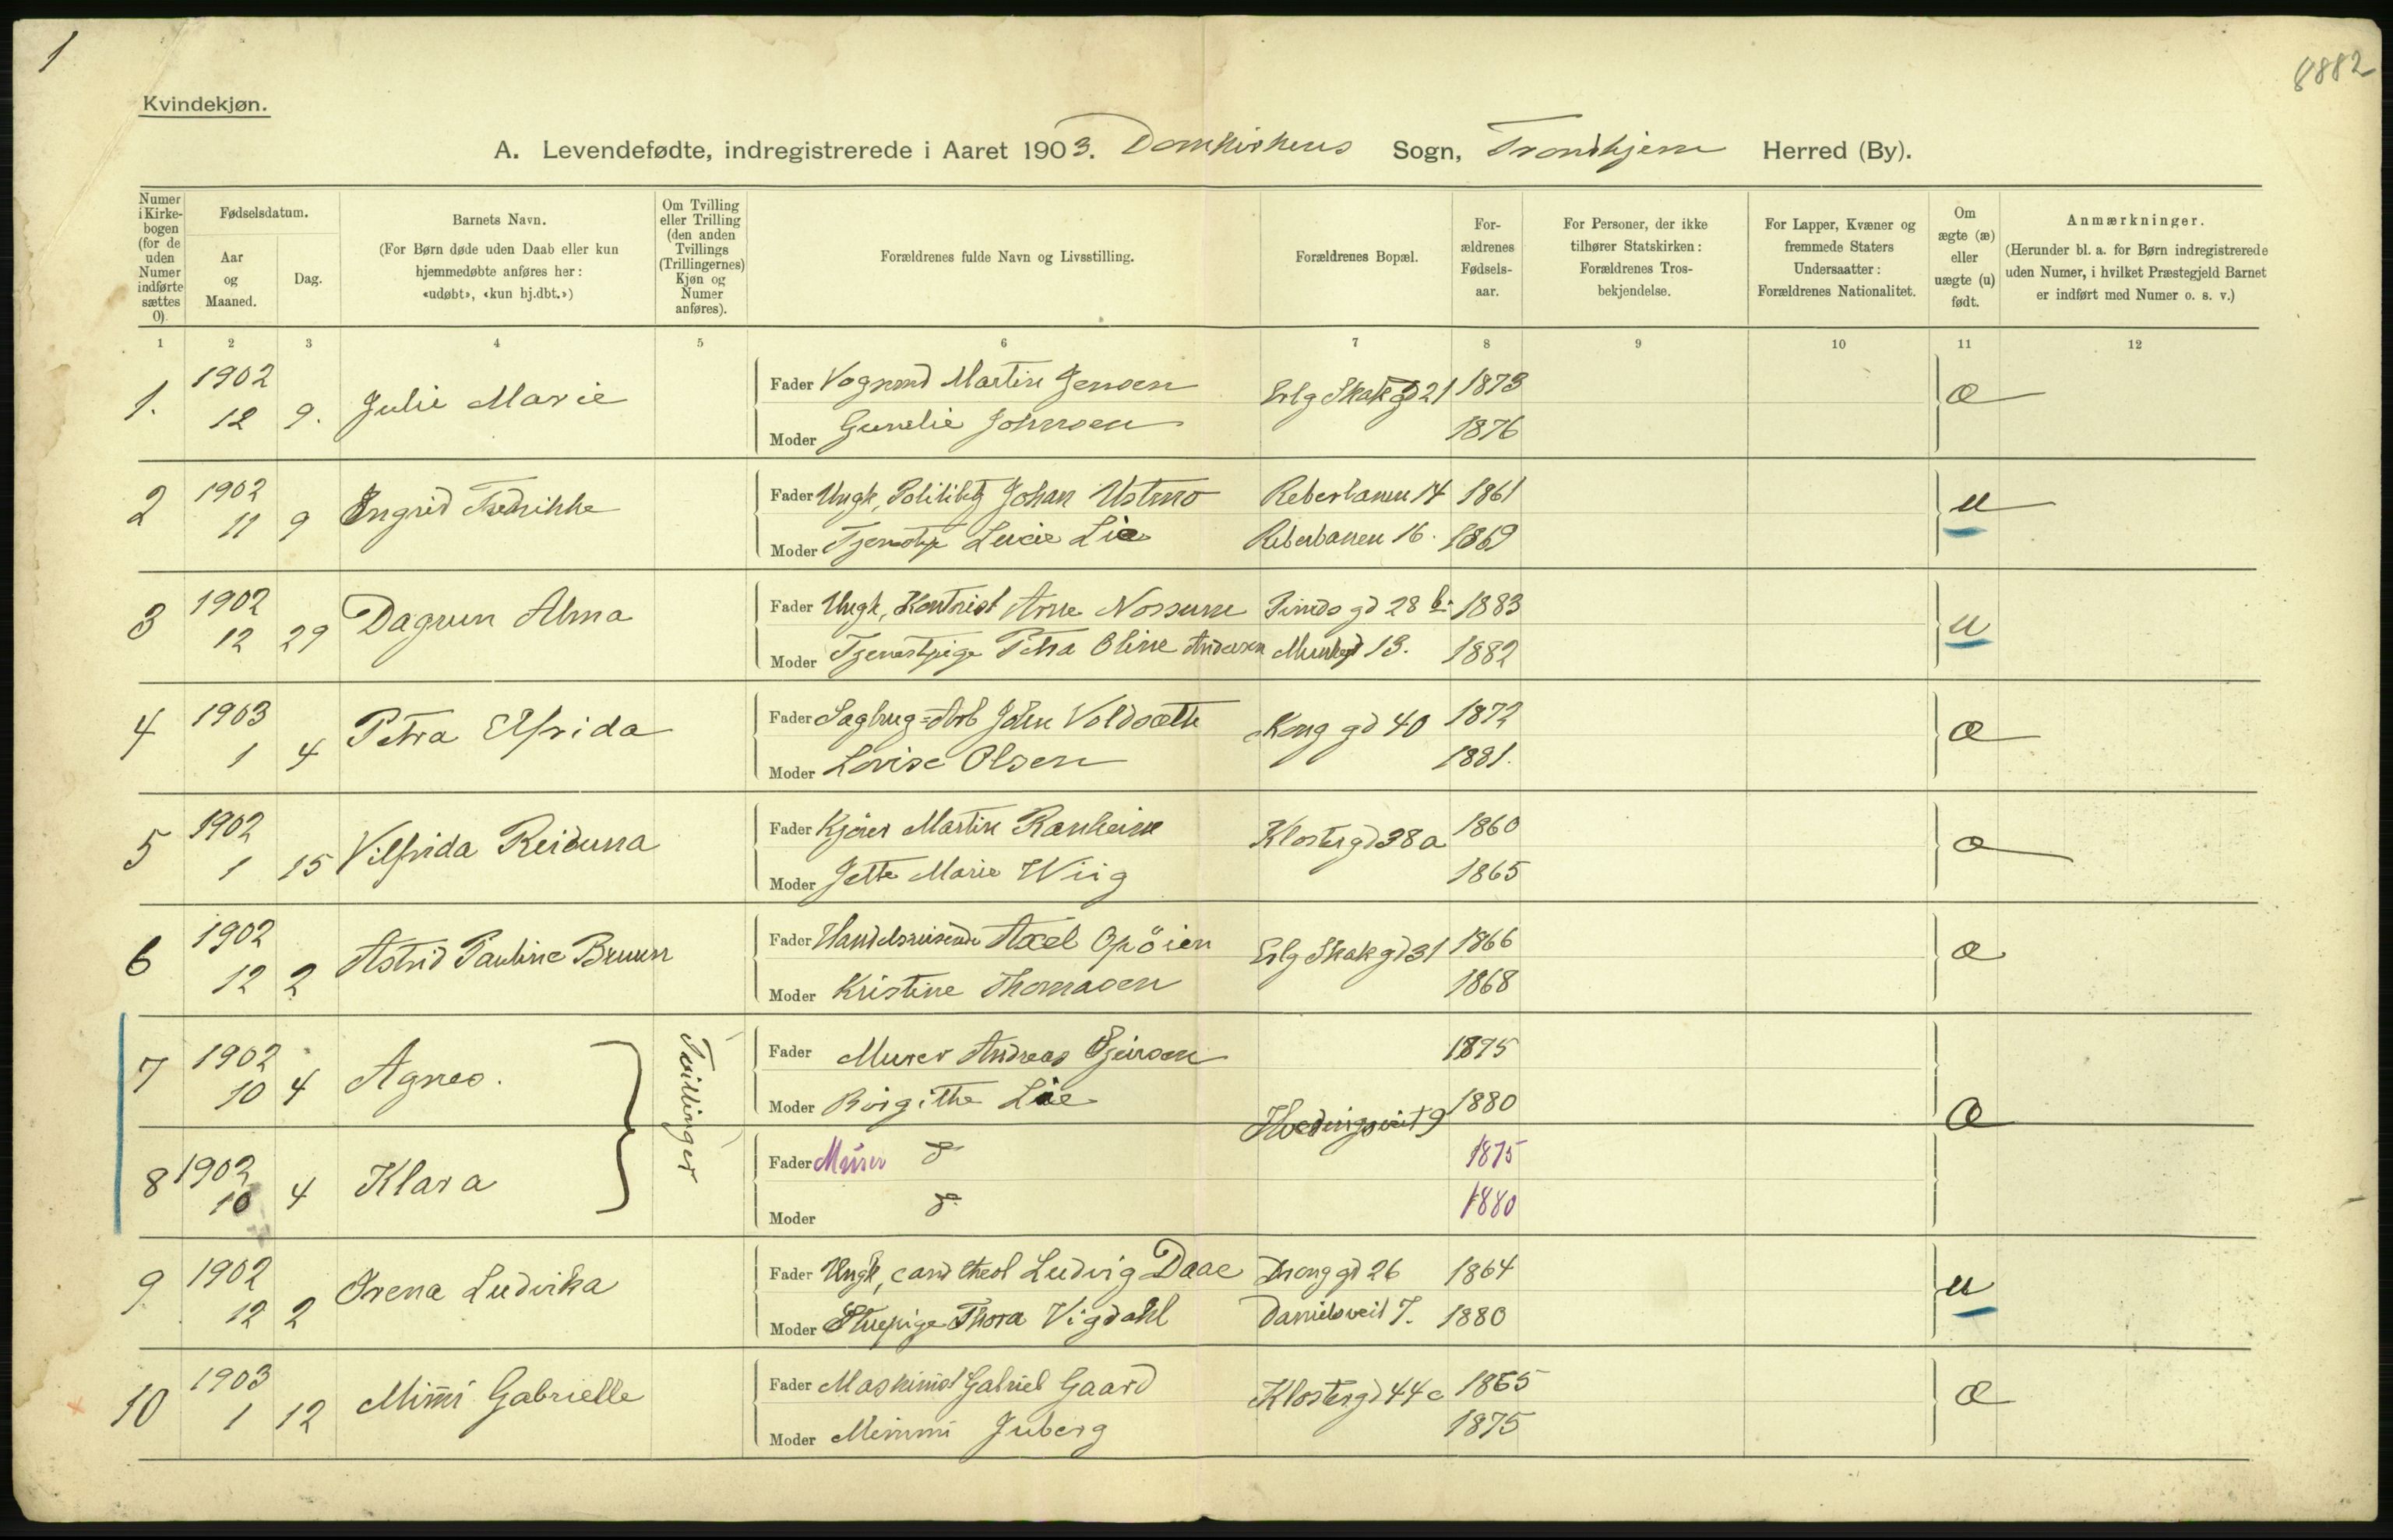 1
8882
Kvindekjøn.
A. Levendefødte, indregistrerede i Aaret 1903. Domkirkens Sogn, Trondhjem Herred (By).
Numer i Kirkebogen (for de uden Numer indførte sættes 0).
Fødselsdatum.
Aar og Maaned.
Dag.
Barnets Navn.
(For Børn døde uden Daab eller kun hjemmedøbte anføres her: «udøbt», «kun hj.dbt.»)
Om Tvilling eller Trilling (den anden Tvillings (Trillingernes) Kjøn og Numer anføres).
Forældrenes fulde Navn og Livsstilling.
Forældrenes Bopæl.
Forældrenes Fødselsaar.
For Personer, der ikke tilhører Statskirken: Forældrenes Trosbekjendelse.
For Lapper, Kvæner og fremmede Staters Undersaatter: Forældrenes Nationalitet.
Om ægte (æ) eller uægte (u) født.
Anmærkninger.
(Herunder bl. a. for Børn indregistrerede uden Numer, i hvilket Præstegjeld Barnet er indført med Numer o. s. v.)
1 2 3 4 5 6 7 8 9 10 11 12
1. 1902 12 9. Julie Marie
Fader Vognmd Martin Jensen Erlg Skak gd 21 1873 æ
Moder Gunelie Johnsen 1876
2 1902 11 9 Engrid Fredrikke
Fader Ungk, Politibtj Johan Ustmo Reberbanen 14 1861 u
Moder Tjenestp Lucie Lie Reberbanen 16. 1869
3 1902 12 29 Dagrun Alma
Fader Ungk, Kontorist Arne Nossum gd 28 b. 1883 u
Moder Tjenestpige Petra Oline Andersen Munkgd 13. 1882
4 1903 1 4 Petra Elfrida
Fader Sagbrug=Arb John Voldsæth Kong gd 40 1872 æ
Moder Lovise Olsen 1881.
5 1902 1 15 Vilfrida Reidunna
Fader Kjører Martin Ranheim Klostergd 38a 1860 æ
Moder Jette Marie Wiig 1865
6 1902 12 2 Astrid Pauline Bruun
Fader Handelsreisende Axel Opöien Erlg Skak gd 31 1866 æ
Moder Kristine Thomasen 1868
7 1902 10 4 Agnes. Tvillinger
Fader Murer Andreas 1875
Moder Birgitte Lie 1880
Hvedingsveit 9 æ
8 1902 10 4 Klara
Fader Murer do 1875
Moder do 1880
9 1902 12 2 Irena Ludvika
Fader Ungk, cand theol Ludvig Daae gd 26 1864 u
Moder Stuepige Thora Vigdahl Danielsveit 7. 1880
10 1903 1 12 Mimi Gabrielle
Fader Maskinist Gabriel Gaard Klostergd 44c 1865 æ
Moder Mimmi Juberg 1875